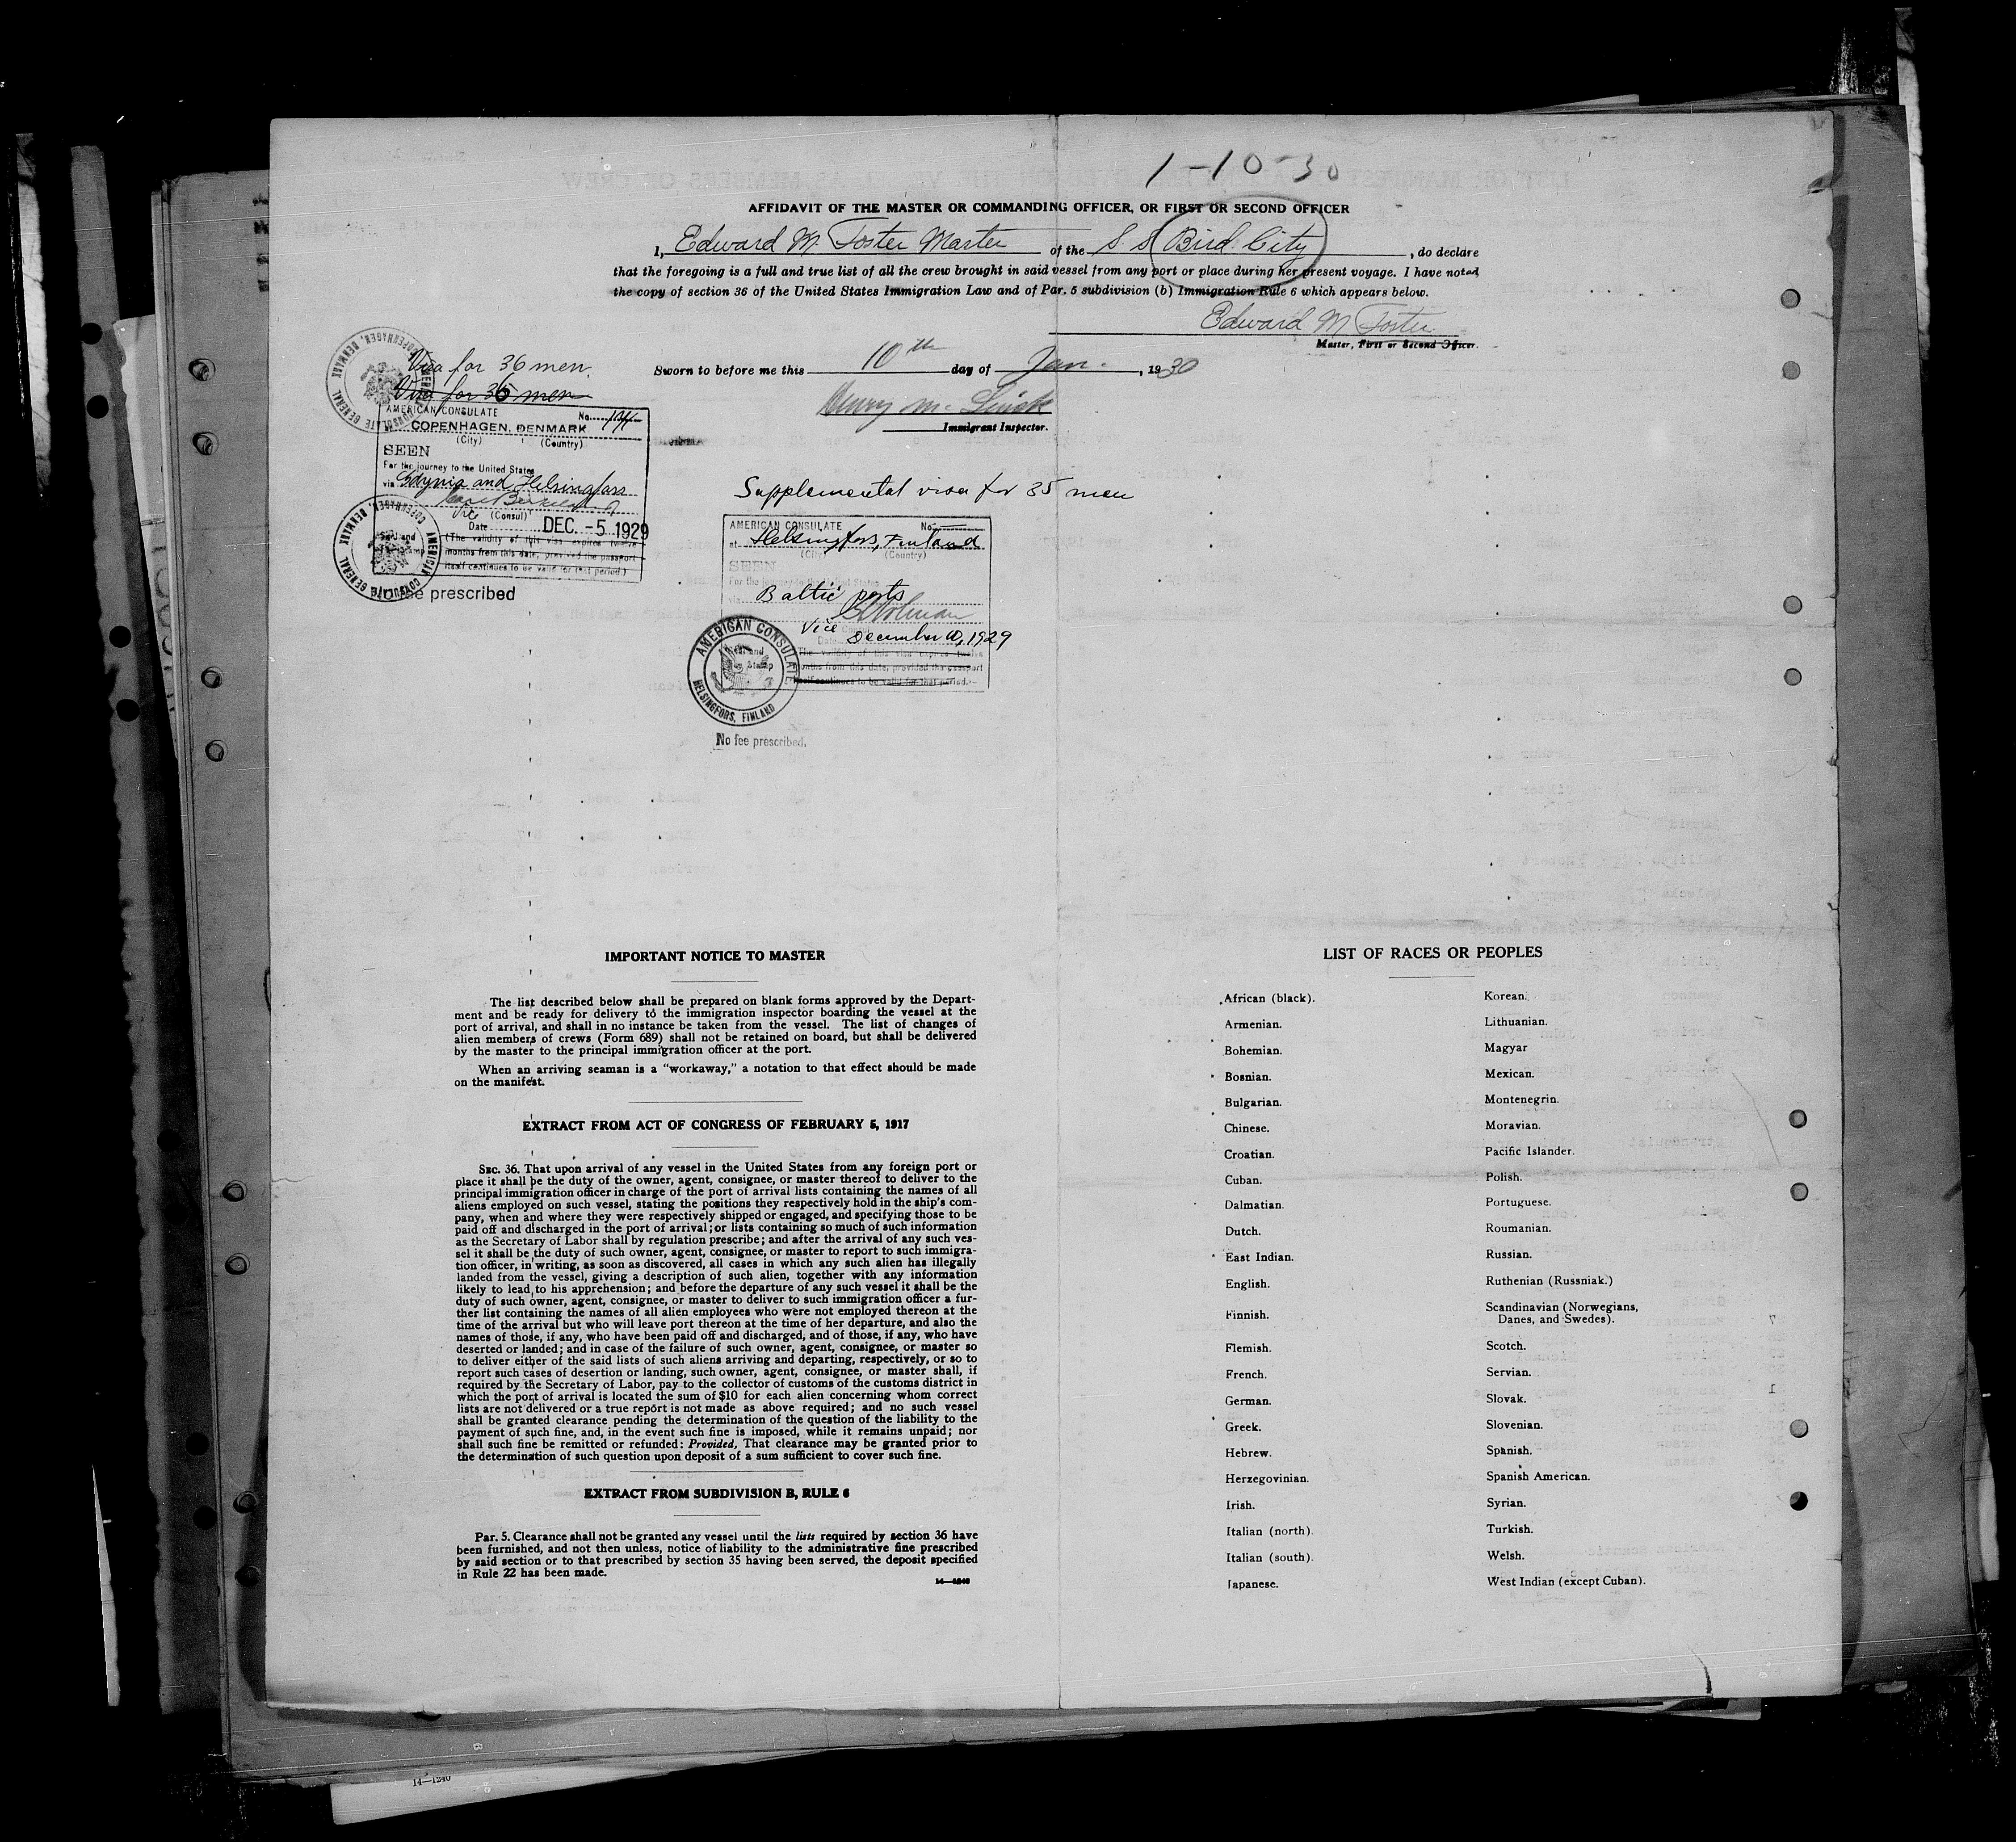 1-10-30
AFFIDAVIT OF THE MASTER OR COMMANDING OFFICER, OR FIRST OR SECOND OFFICER
I, Edward M. Foster Master of the S S Bird City, do declare
that the foregoing is a full and true list of all the crew brought in said vessel from any port or place during her present voyage. I have noted
the copy of section 36 of the United States Immigration Law and of Par. 5 subdivision (b) Immigration Rule 6 which appears below.
Edward M Foster
Master, First or Second Officer.
Sworn to before me this 10th day of Jan. , 1930
Henry M.
Immigrant Inspector.
Visa for 36 men.
Visa for 35 men
AMERICAN CONSULATE No.
COPENHAGEN, DENMARK
(City) (Country)
SEEN
For the journey to the United States
via Gdynia and Helsingfors
Vice (Consul)
Date DEC. -5 1929
(The validity of this visa expires twelve
months from this date, provided the passport
itself continues to be valid for that period.)
AMERICAN CONSULATE GENERAL COPENHAGEN, DENMARK
AMERICAN CONSULATE GENERAL COPENHAGEN, DENMARK
fee prescribed
Supplemental visa for 35 men
AMERICAN CONSULATE No.
at Helsingfors, Finland
(City) (Country)
SEEN
For the journey to the United States
via Baltic ports
Vice
Date December 10, 1929
The validity of this visa expires twelve
months from this date, provided the passport
itself continues to be valid for that period.
AMERICAN CONSULATE
Seal and
Stamp
HELSINGFORS, FINLAND
No fee prescribed.
IMPORTANT NOTICE TO MASTER
The list described below shall be prepared on blank forms approved by the Depart-
ment and be ready for delivery to the immigration inspector boarding the vessel at the
port of arrival, and shall in no instance be taken from the vessel. The list of changes of
alien members of crews (Form 689) shall not be retained on board, but shall be delivered
by the master to the principal immigration officer at the port.
When an arriving seaman is a "workaway," a notation to that effect should be made
on the manifest.
EXTRACT FROM ACT OF CONGRESS OF FEBRUARY 5, 1917
SEC. 36. That upon arrival of any vessel in the United States from any foreign port or
place it shall be the duty of the owner, agent, consignee, or master thereof to deliver to the
principal immigration officer in charge of the port of arrival lists containing the names of all
aliens employed on such vessel, stating the positions they respectively hold in the ship's com-
pany, when and where they were respectively shipped or engaged, and specifying those to be
paid off and discharged in the port of arrival; or lists containing so much of such information
as the Secretary of Labor shall by regulation prescribe; and after the arrival of any such ves-
sel it shall be the duty of such owner, agent, consignee, or master to report to such immigra-
tion officer, in writing, as soon as discovered, all cases in which any such alien has illegally
landed from the vessel, giving a description of such alien, together with any information
likely to lead to his apprehension; and before the departure of any such vessel it shall be the
duty of such owner, agent, consignee, or master to deliver to such immigration officer a fur-
ther list containing the names of all alien employees who were not employed thereon at the
time of the arrival but who will leave port thereon at the time of her departure, and also the
names of those, if any, who have been paid off and discharged, and of those, if any, who have
deserted or landed; and in case of the failure of such owner, agent, consignee, or master so
to deliver either of the said lists of such aliens arriving and departing, respectively, or so to
report such cases of desertion or landing, such owner, agent, consignee, or master shall, if
required by the Secretary of Labor, pay to the collector of customs of the customs district in
which the port of arrival is located the sum of $10 for each alien concerning whom correct
lists are not delivered or a true report is not made as above required; and no such vessel
shall be granted clearance pending the determination of the question of the liability to the
payment of such fine, and, in the event such fine is imposed, while it remains unpaid; nor
shall such fine be remitted or refunded: Provided, That clearance may be granted prior to
the determination of such question upon deposit of a sum sufficient to cover such fine.
EXTRACT FROM SUBDIVISION B, RULE 6
Par. 5. Clearance shall not be granted any vessel until the lists required by section 36 have
been furnished, and not then unless, notice of liability to the administrative fine prescribed
by said section or to that prescribed by section 35 having been served, the deposit specified
in Rule 22 has been made.
14—1240
LIST OF RACES OR PEOPLES
African (black).
Armenian.
Bohemian.
Bosnian.
Bulgarian.
Chinese.
Croatian.
Cuban.
Dalmatian.
Dutch.
East Indian.
English.
Finnish.
Flemish.
French.
German.
Greek.
Hebrew.
Herzegovinian.
Irish.
Italian (north).
Italian (south).
Japanese.
Korean.
Lithuanian.
Magyar
Mexican.
Montenegrin.
Moravian.
Pacific Islander.
Polish.
Portuguese.
Roumanian.
Russian.
Ruthenian (Russniak.)
Scandinavian (Norwegians,
Danes, and Swedes).
Scotch.
Servian.
Slovak.
Slovenian.
Spanish.
Spanish American.
Syrian.
Turkish.
Welsh.
West Indian (except Cuban).
14—1240